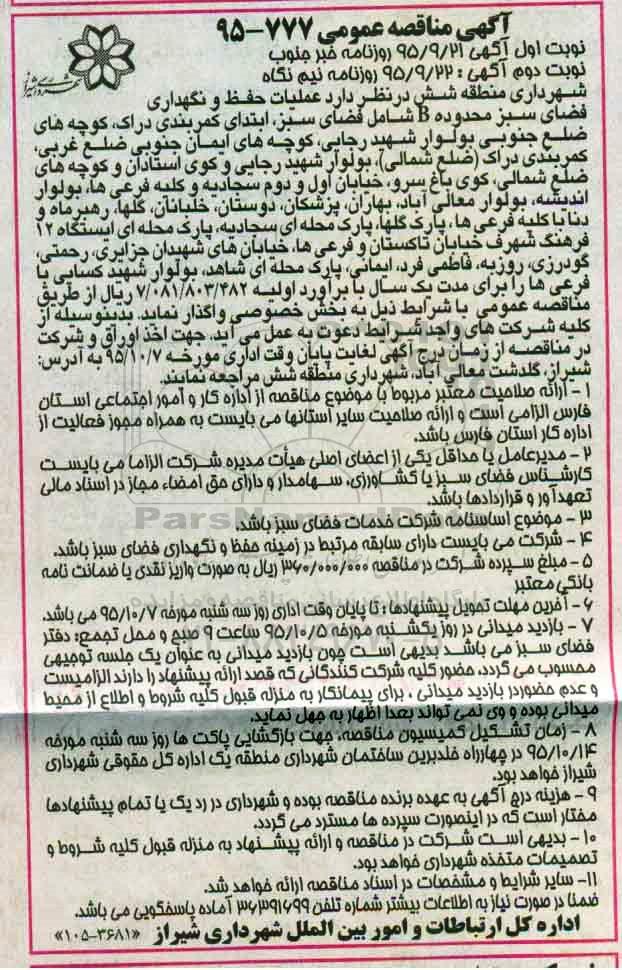 آگهی مناقصه عمومی ۷۷۷-۹۵
نوبت اول آگهی ۹۵/۹/۲۱ روزنامه خبر جنوب
نوبت دوم آگهی : ۹۵/۹/۲۲ روزنامه نیم نگاه
شهرداری شیراز
شهرداری منطقه شش در نظر دارد عملیات حفظ و نگهداری
فضای سبز محدوده B شامل فضای سبز، ابتدای کمربندی دراک، کوچه های
ضلع جنوبی بولوار شهید رجایی، کوچه های ایمان جنوبی ضلع غربی،
کمربندی دراک (ضلع شمالی)، بولوار شهید رجایی و کوی استادان و کوچه های
ضلع شمالی، کوی باغ سرو، خیابان اول و دوم سجادیه و کلیه فرعی ها، بولوار
اندیشه، بولوار معالی آباد، بهاران، پزشکان، دوستان، خلبانان، گلها، رهبرماه و
دنا با کلیه فرعی ها، پارک گلها، پارک محله ای سجادیه، پارک محله ای ایستگاه ۱۲
فرهنگ شهرف خیابان تاکستان و فرعی ها، خیابان های شهیدان جزایری، رحمتی،
گودرزی، روزبه، فاطمی فرد، ایمانی، پارک محله ای شاهد، بولوار شهید کسایی با
فرعی ها را برای مدت یک سال با برآورد اولیه ۷/۰۸۱/۸۰۳/۴۸۲ ریال از طریق
مناقصه عمومی با شرایط ذیل به بخش خصوصی واگذار نماید. بدینوسیله از
کلیه شرکت های واجد شرایط دعوت به عمل می آید. جهت اخذ اوراق و شرکت
در مناقصه از زمان درج آگهی لغایت پایان وقت اداری مورخه ۹۵/۱۰/۷ به آدرس:
شیراز، گلدشت معالی آباد، شهرداری منطقه شش مراجعه نمایند.
۱ - ارائه صلاحیت معتبر مربوط با موضوع مناقصه از اداره کار و امور اجتماعی استان
فارس الزامی است و ارائه صلاحیت سایر استانها می بایست به همراه مجوز فعالیت از
اداره کار استان فارس باشد.
۲ - مدیرعامل یا حداقل یکی از اعضای اصلی هیأت مدیره شرکت الزاما می بایست
کارشناس فضای سبز یا کشاورزی، سهامدار و دارای حق امضاء مجاز در اسناد مالی
تعهدآور و قراردادها باشد.
۳ - موضوع اساسنامه شرکت خدمات فضای سبز باشد.
۴ - شرکت می بایست دارای سابقه مرتبط در زمینه حفظ و نگهداری فضای سبز باشد.
۵ - مبلغ سپرده شرکت در مناقصه ۳۶۰/۰۰۰/۰۰۰ ریال به صورت واریز نقدی یا ضمانت نامه
بانکی معتبر
۶ - آخرین مهلت تحویل پیشنهادها : تا پایان وقت اداری روز سه شنبه مورخه ۹۵/۱۰/۷ می باشد.
۷ - بازدید میدانی در روز یکشنبه مورخه ۹۵/۱۰/۵ ساعت ۹ صبح و محل تجمع: دفتر
فضای سبز می باشد بدیهی است چون بازدید میدانی به عنوان یک جلسه توجیهی
محسوب می گردد، حضور کلیه شرکت کنندگانی که قصد ارائه پیشنهاد را دارند الزامیست
و عدم حضور در بازدید میدانی ، برای پیمانکار به منزله قبول کلیه شروط و اطلاع از محیط
میدانی بوده و وی نمی تواند بعدا اظهار به جهل نماید.
۸ - زمان تشکیل کمیسیون مناقصه، جهت بازگشایی پاکت ها روز سه شنبه مورخه
۹۵/۱۰/۱۴ در چهارراه خلدبرین ساختمان شهرداری منطقه یک اداره کل حقوقی شهرداری
شیراز خواهد بود.
۹ - هزینه درج آگهی به عهده برنده مناقصه بوده و شهرداری در رد یک یا تمام پیشنهادها
مختار است که در اینصورت سپرده ها مسترد می گردد.
۱۰ - بدیهی است شرکت در مناقصه و ارائه پیشنهاد به منزله قبول کلیه شروط و
تصمیمات متخذه شهرداری خواهد بود.
۱۱- سایر شرایط و مشخصات در اسناد مناقصه ارائه خواهد شد.
ضمنا در صورت نیاز به اطلاعات بیشتر شماره تلفن ۳۶۳۹۱۶۹۹ آماده پاسخگویی می باشد.
اداره کل ارتباطات و امور بین الملل شهرداری شیراز «۳۶۸۱-۱۰۵»